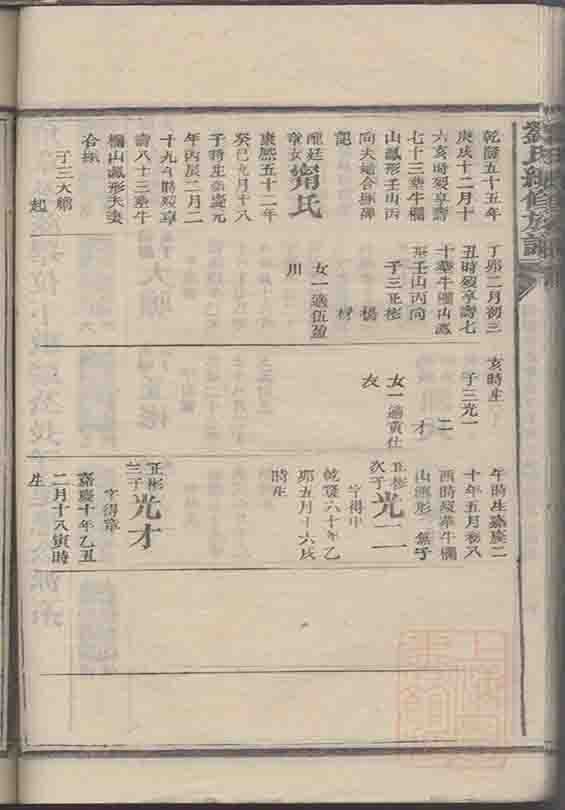 劉氏續修族譜
乾隆五十五年
庚戌十二月十
六亥時歿享壽
七十三葬牛欄
山鳳形壬山丙
向夫妻合塚碑
記
醒廷
章女甯氏
康熙五十二年
癸巳九月十八
子時生嘉慶元
年丙辰二月二
十九午時歿享
壽八十三葬牛
欄山鳳形夫妻
合塚
子三大綱
起
丁卯二月初三
丑時歿享壽七
十葬牛欄山鳳
形壬山丙向
子三正彬
楊
材
女一適伍盈
川
亥時生
子三光一
二
才
女一適黃仕
友
午時生嘉慶二
十年五月初八
酉時歿葬牛欄
山鳳形 無子
正彬
次子光二
字得中
乾隆六十年乙
卯五月十六戌
時生
正彬
三子光才
字得章
嘉慶十年乙丑
二月十八寅時
生